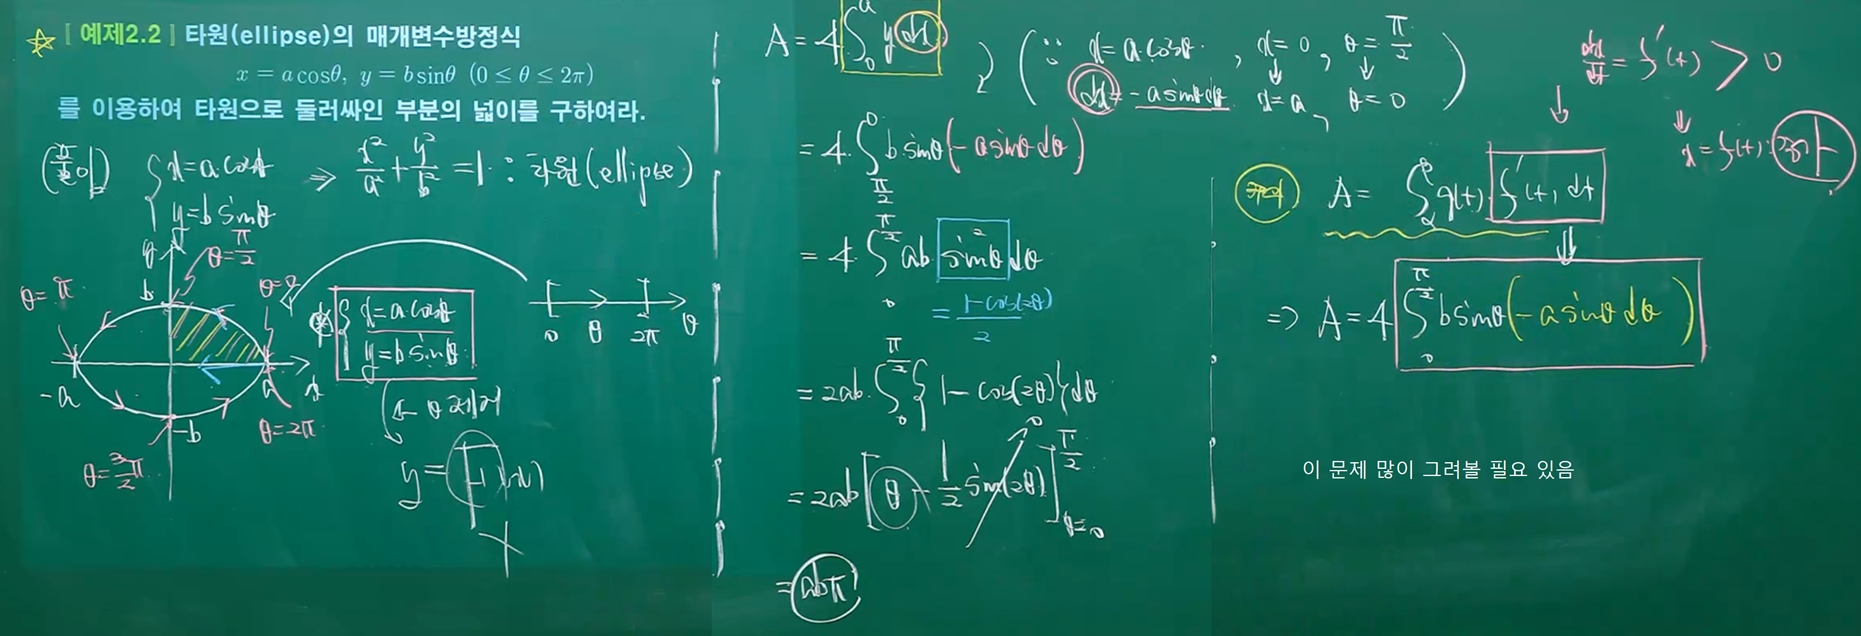 [예제2.2] 타원(ellipse)의 매개변수방정식
x = a cosθ, y = b sinθ (0 ≤ θ ≤ 2π)
를 이용하여 타원으로 둘러싸인 부분의 넓이를 구하여라.
x = a cosθ
y = b sinθ
⇒ x²/a² + y²/b² = 1 : 타원(ellipse)
y
θ = π/2
b
θ = π
θ = 0
-a
a
x
-b
θ = 2π
θ = 3π/2
x = a cosθ
y = b sinθ
0 θ 2π θ
← θ 제거
y = F(x)
A = 4∫₀ᵃ y dx
(∵ x = a cosθ, x = 0, θ = π/2
dx = -a sinθ dθ x = a, θ = 0)
= 4·∫_{π/2}^{0} b sinθ(-a sinθ dθ)
= 4·∫_{0}^{π/2} ab sin²θ dθ
= (1-cos(2θ))/2
= 2ab·∫_{0}^{π/2} {1 - cos(2θ)} dθ
= 2ab[θ - 1/2 sin(2θ)]_{θ=0}^{π/2} 0
= abπ
dx/dt = f'(t) > 0
↓
A = ∫_{α}^{β} g(t) f'(t) dt
⇒ A = 4∫_{0}^{π/2} b sinθ(-a sinθ dθ)
이 문제 많이 그려볼 필요 있음